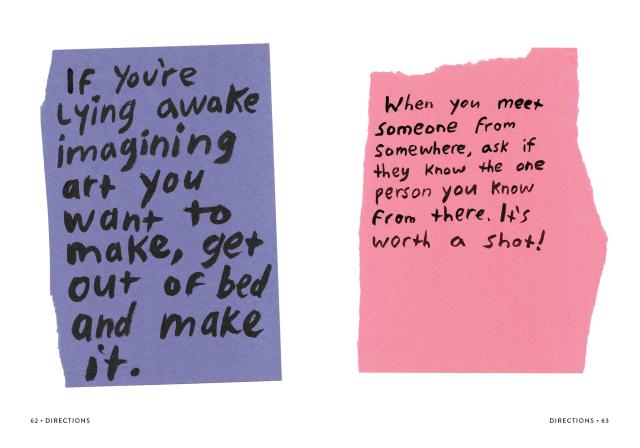 If you're
lying awake
imagining
art you
want to
make, get
out of bed
and make
it.
62 • DIRECTIONS
When you meet
someone from
somewhere, ask if
they know the one
person you know
from there. It's
worth a shot!
DIRECTIONS • 63